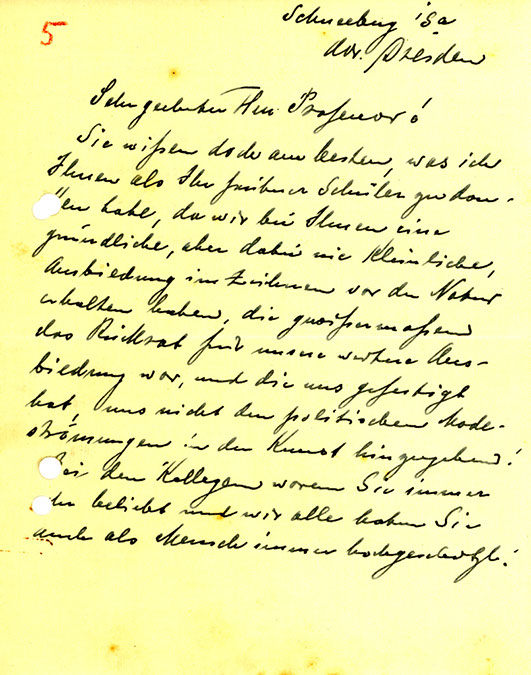 5
Schneeberg i/Sa
Dresden
Sehr geehrter Herr Professor!
Sie wißen doch am besten, was ich
Ihnen als Ihr früherer Schüler zu dan-
ken habe, da wir bei Ihnen eine
gründliche, aber dabei nie kleinliche,
Ausbildung im Zeichnen vor der Natur
erhalten haben, die gewissermaßen
das Rückrat für unsere weitere Aus-
bildung war, und die uns gefestigt
hat, uns nicht den politischen Mode-
strömungen in der Kunst hinzugeben!
Bei den Kollegen waren Sie immer
sehr beliebt und wir alle haben Sie
auch als Mensch immer hochgeschätzt!